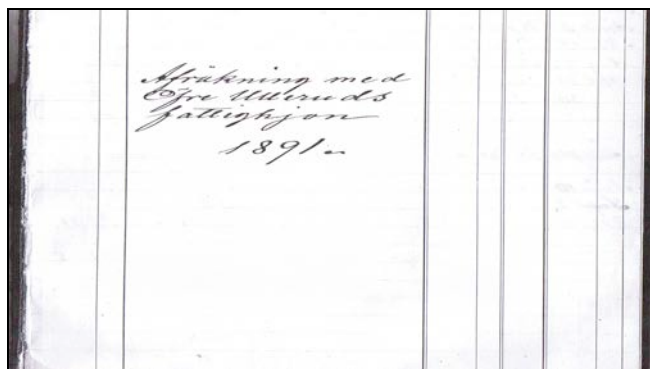 Afräkning med
Öfre Ulleruds
fattighjon
1891